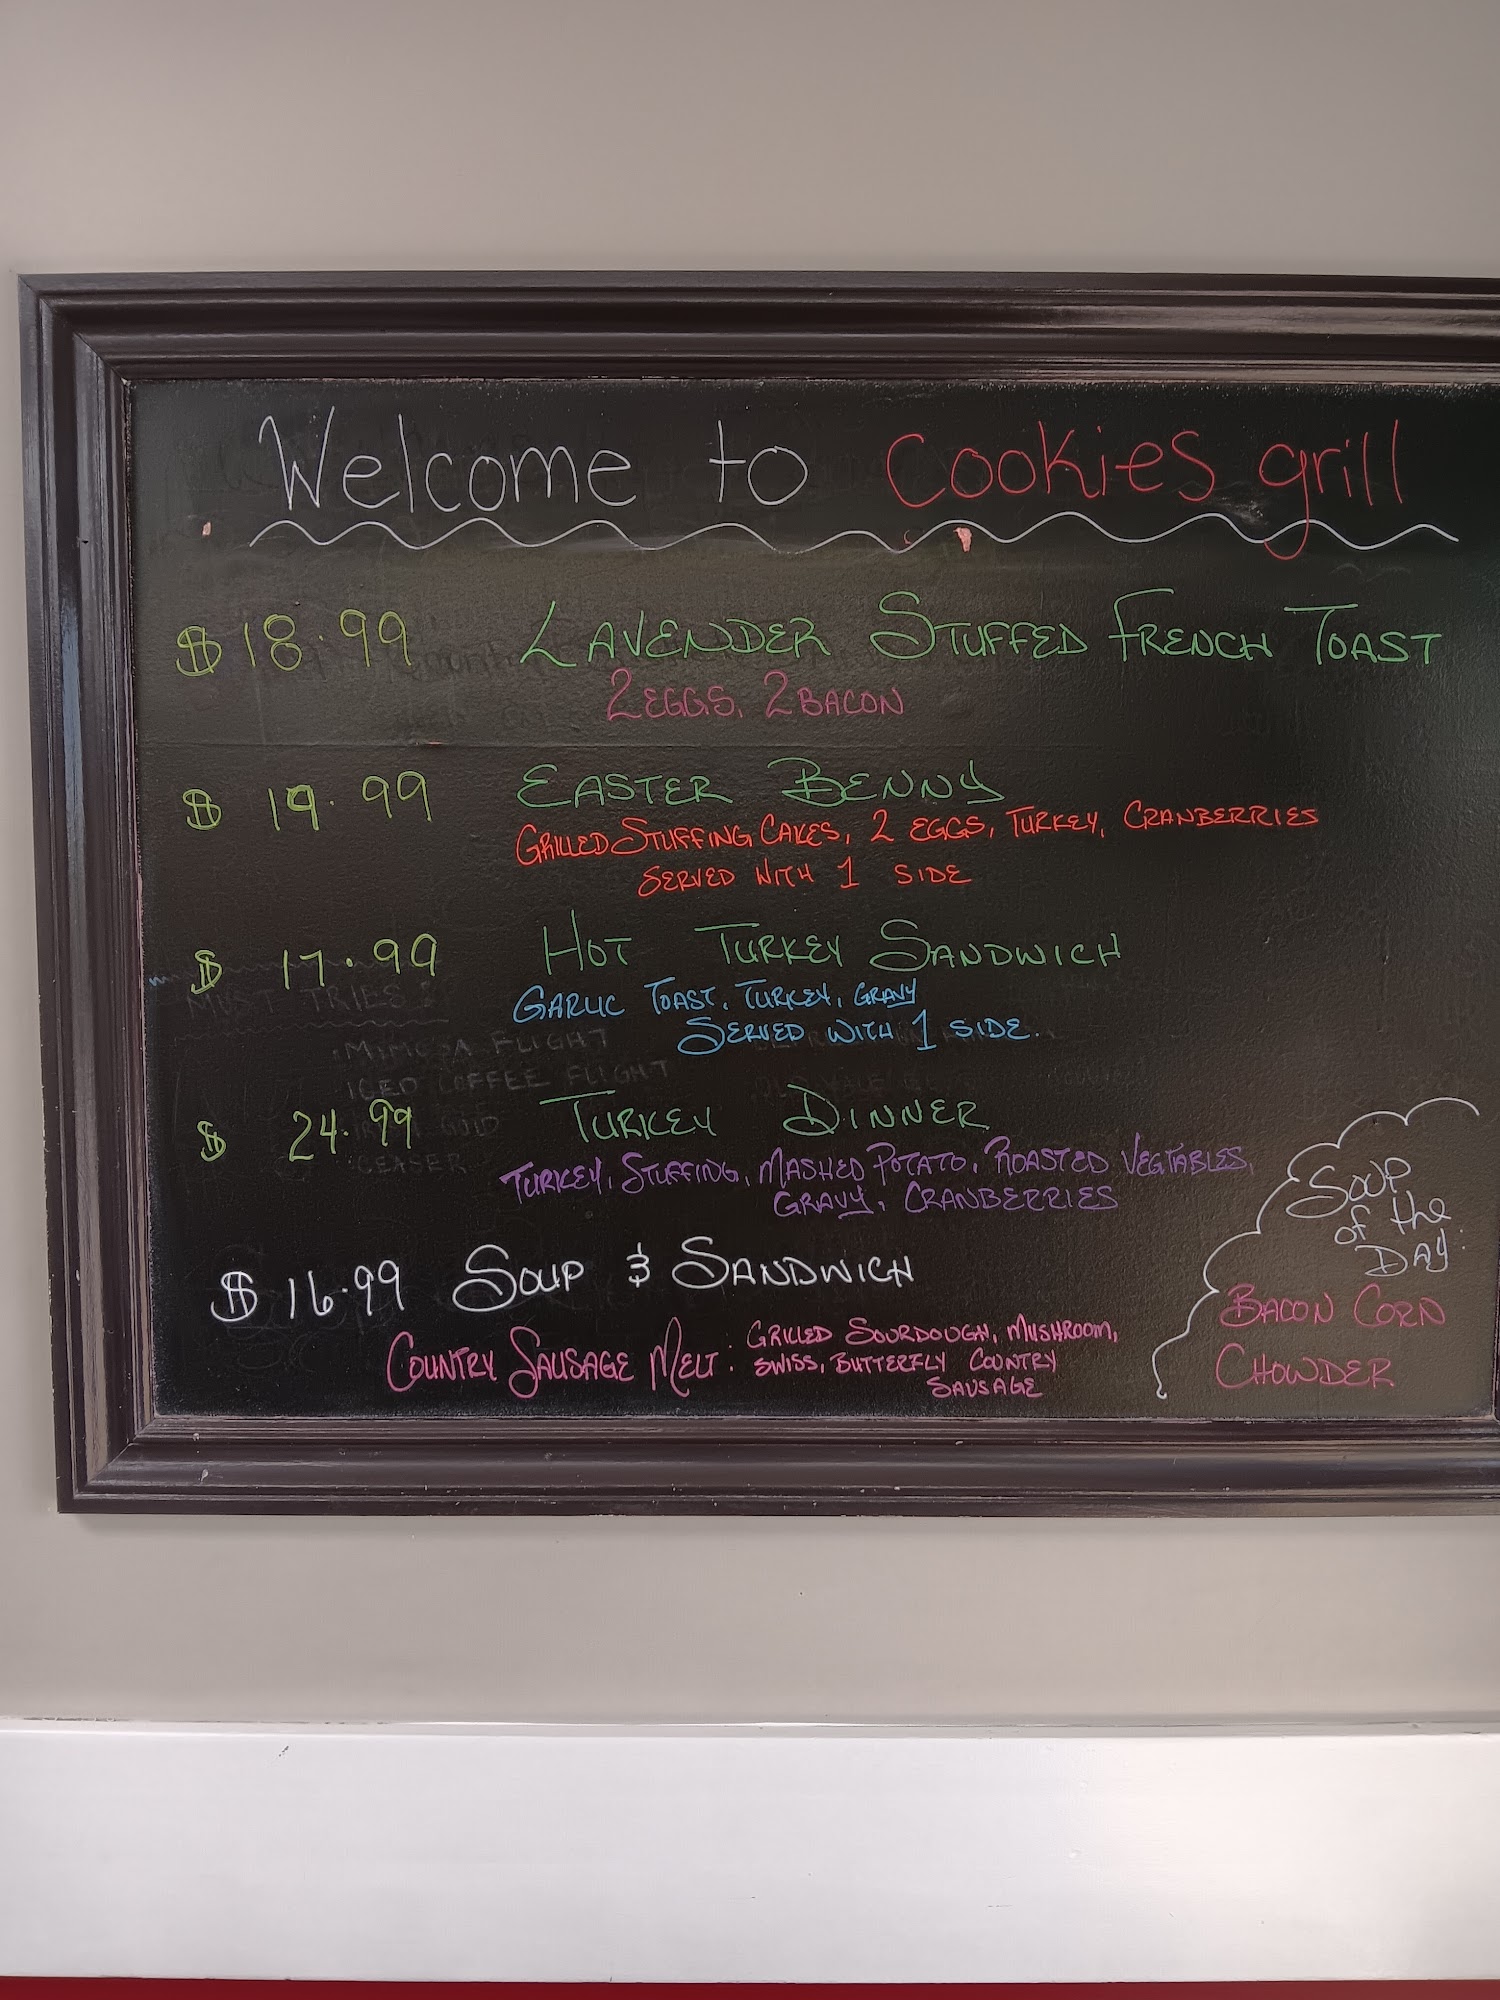 Welcome to Cookies grill
$18.99 LAVENDER STUFFED FRENCH TOAST
2 EGGS, 2 BACON
$ 19.99 EASTER BENNY
GRILLED STUFFING CAKES, 2 EGGS, TURKEY, CRANBERRIES
SERVED WITH 1 SIDE
$ 17.99 HOT TURKEY SANDWICH
GARLIC TOAST, TURKEY, GRAVY
SERVED WITH 1 SIDE.
MUST TRIES:
MIMOSA FLIGHT
ICED COFFEE FLIGHT
CEASER
$ 24.99 TURKEY DINNER
TURKEY, STUFFING, MASHED POTATO, ROASTED VEGTABLES,
GRAVY, CRANBERRIES
$16.99 SOUP & SANDWICH
COUNTRY SAUSAGE MELT: GRILLED SOURDOUGH, MUSHROOM,
SWISS, BUTTERFLY COUNTRY
SAUSAGE
SOUP
of the
DAY:
BACON CORN
CHOWDER